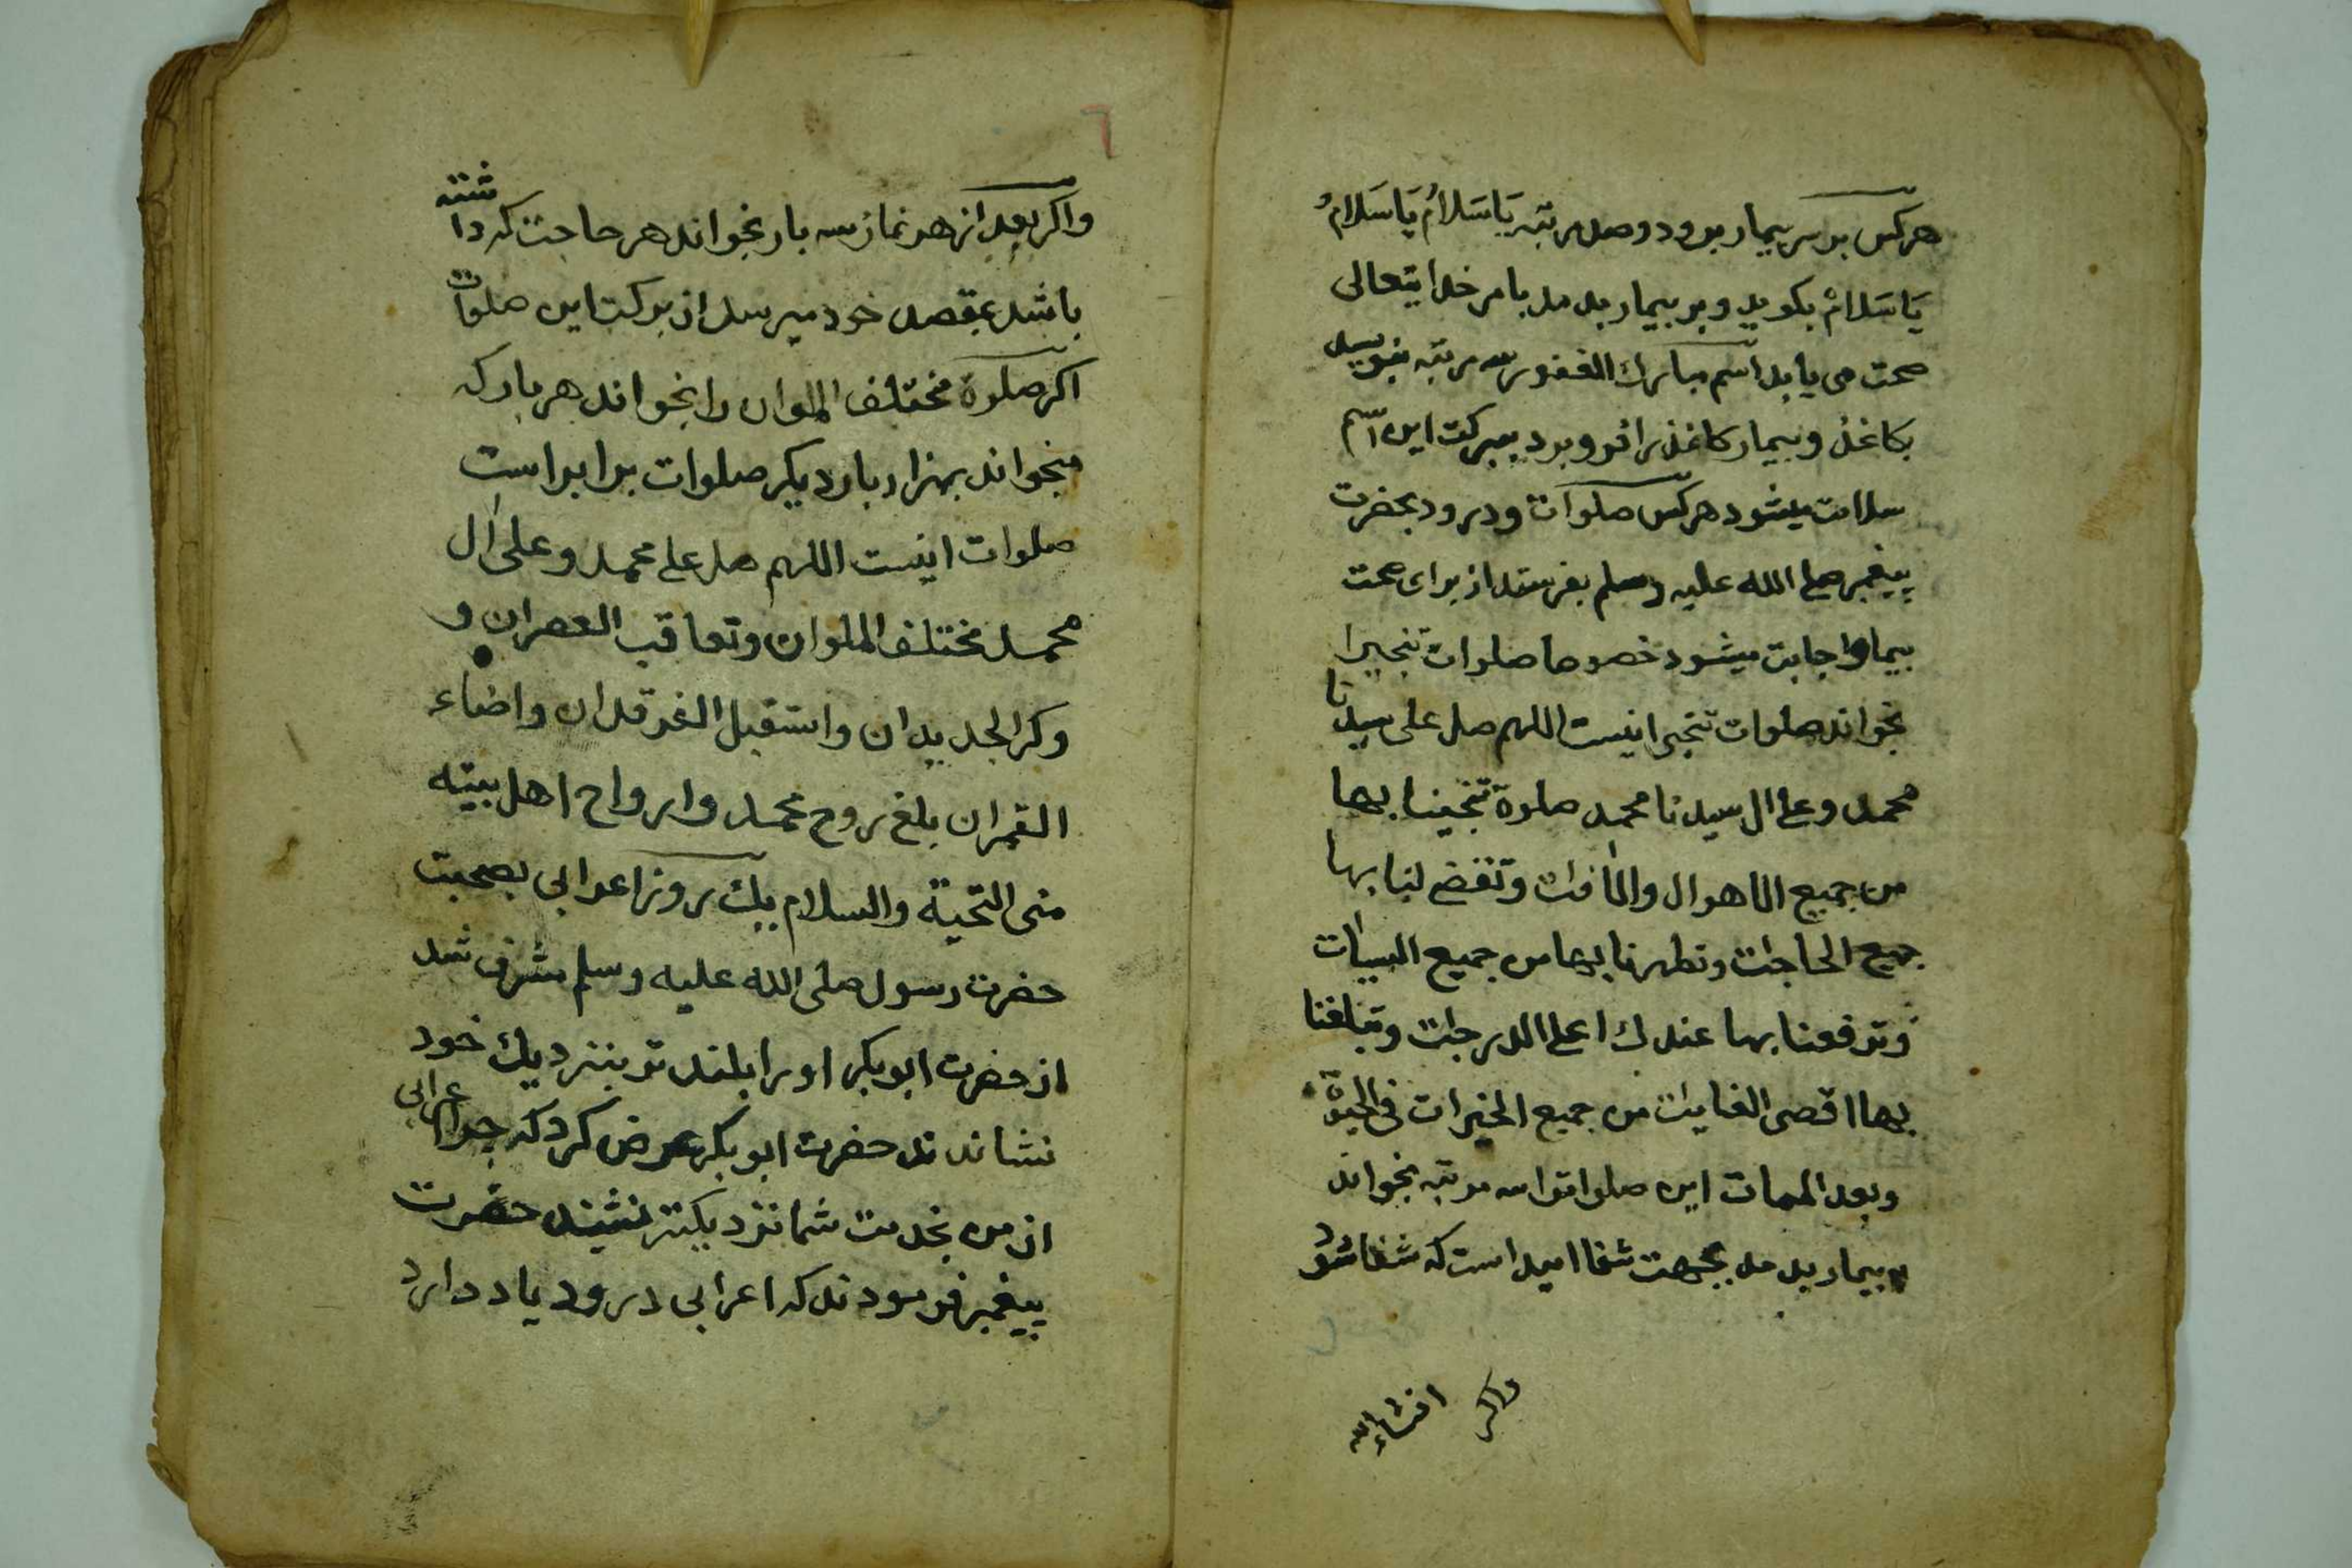 هرکس بر سر بیمار برود و صد مرتبه یَاسَلامُ یَاسَلامُ
یَاسَلامُ بکوید و بر بیمار بدمد بامر خدایتعالی
صحت می یابد اسم مبارك الغفور سه مرتبه بنویسد
بکاغذ و بیمار کاغذ را فرو برد ببرکت این اسم
سلامت میشود هرکس صلوات و درود بحضرت
پیغمبر صلی الله علیه وسلم بفرستد از برای صحت
بیمار اجابت میشود خصوصا صلوات تنجیرا
بخواند صلوات تنجیرا اینست اللهم صل علی سیدنا
محمد وعلی ال سیدنا محمد صلوة تنجینا بها
من جمیع الاهوال والافات وتقضی لنا بها
جمیع الحاجات وتطهرنا بها من جمیع السیات
وترفعنا بها عندك اعلی الدرجات وتبلغنا
بها اقصی الغایات من جمیع الخیرات فی الحیوة
وبعد الممات این صلواترا سه مرتبه بخواند
بر بیمار بدمد بجهت شفا امید است که شفا شود
انشاءالله
واکر
٦
واکر بعد از هر نماز سه بار بخواند هر حاجت که داشته
باشد بمقصد خود میرسد از برکت این صلوات
اکر صلوة مختلف الملوان را بخواند هر بار که
میخواند بهزار بار دیکر صلوات برابر است
صلوات اینست اللهم صل علی محمد وعلی ال
محمد مختلف الملوان وتعاقب العصران و
وکر الجدیدان واستقبل الفرقدان واضاء
القمران بلغ روح محمد وارواح اهل بیته
منی التحیة والسلام یك روز اعرابی بصحبت
حضرت رسول صلی الله علیه وسلم مشرف شد
از حضرت ابوبکر او را بلندتر بنزدیك خود
نشاندند حضرت ابوبکر عرض کرد که چرا اعرابی
از من بخدمت شما نزدیکتر نشیند حضرت
پیغمبر فرمودند که اعرابی درود یاد دارد